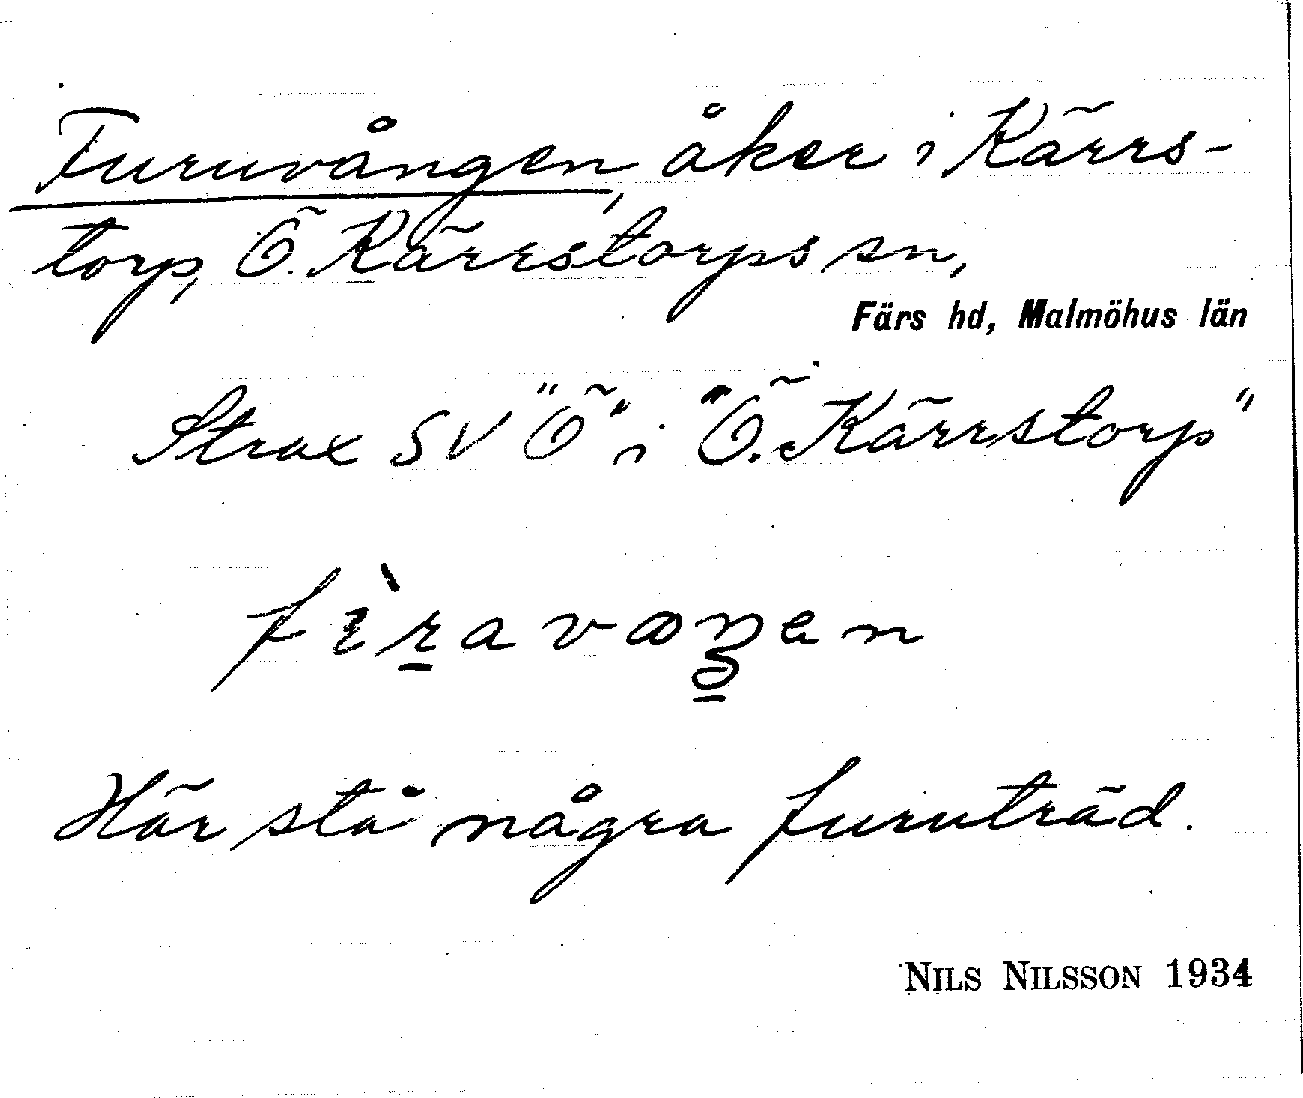 Furuvången, åker i Kärrs-
torp, Ö. Kärrstorps sn,
Färs hd, Malmöhus län
Strax SV "Ö" i "Ö. Kärrstorp"
Här stå några furuträd.
NILS NILSSON 1934